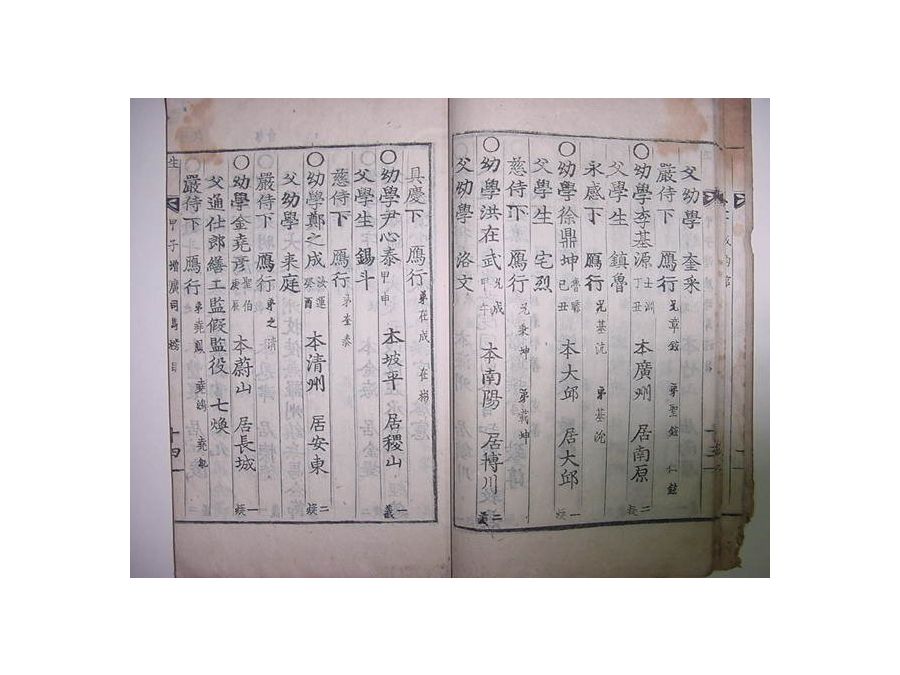 父幼學 奎采
嚴侍下 鴈行 兄章鉉 弟聖鉉 仁鉉
○幼學李基源 士訓 丁丑 本廣州 居南原 二疑
父學生 鎮魯
永感下 鴈行 兄基沆 弟基沇
○幼學徐鼎坤 己丑 本大邱 居大邱 一疑
父學生 宅烈
慈侍下 鴈行 兄秉坤 弟載坤
○幼學洪在武 甲午 本南陽 居博川 二義
父幼學 洛文
具慶下 鴈行 弟在成 在
○幼學尹心泰 甲申 本坡平 居稷山 一義
父學生 錫斗
慈侍下 鴈行 弟奎泰
○幼學鄭之成 汝運 癸酉 本清州 居安東 二疑
父幼學 来庭
嚴侍下 鴈行 弟之
○幼學金堯彦 聖伯 庚辰 本蔚山 居長城 一疑
父通仕郎繕工監假監役 七煥
嚴侍下 鴈行 弟堯鳳 堯 堯
生 甲子增廣司馬榜目 十四